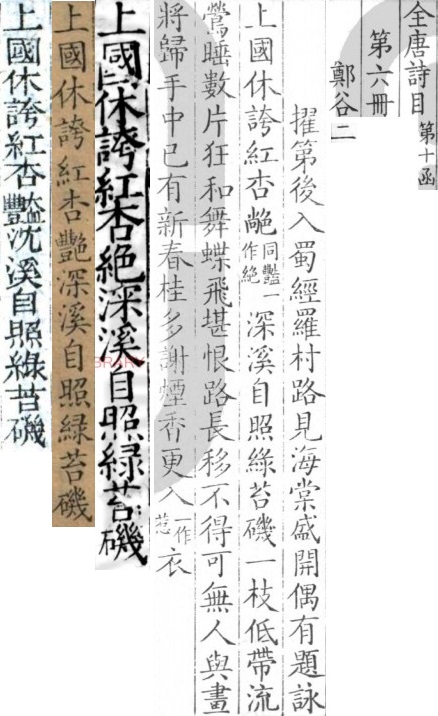 全唐詩目第十函
第六冊
鄭谷二
擢第後入蜀經羅村路見海棠盛開偶有題詠
上國休誇紅杏同豔一作絶深溪自照綠苔磯一枝低帶流
鶯睡數片狂和舞蝶飛堪恨路長移不得可無人與畫
將歸手中已有新春桂多謝煙香更入一作惹衣
上國休誇紅杏絕深溪自照緑苔磯
上國休誇紅杏豔深溪自照緑苔磯
上國休誇紅杏豔沈溪自照綠苔磯
BRARY